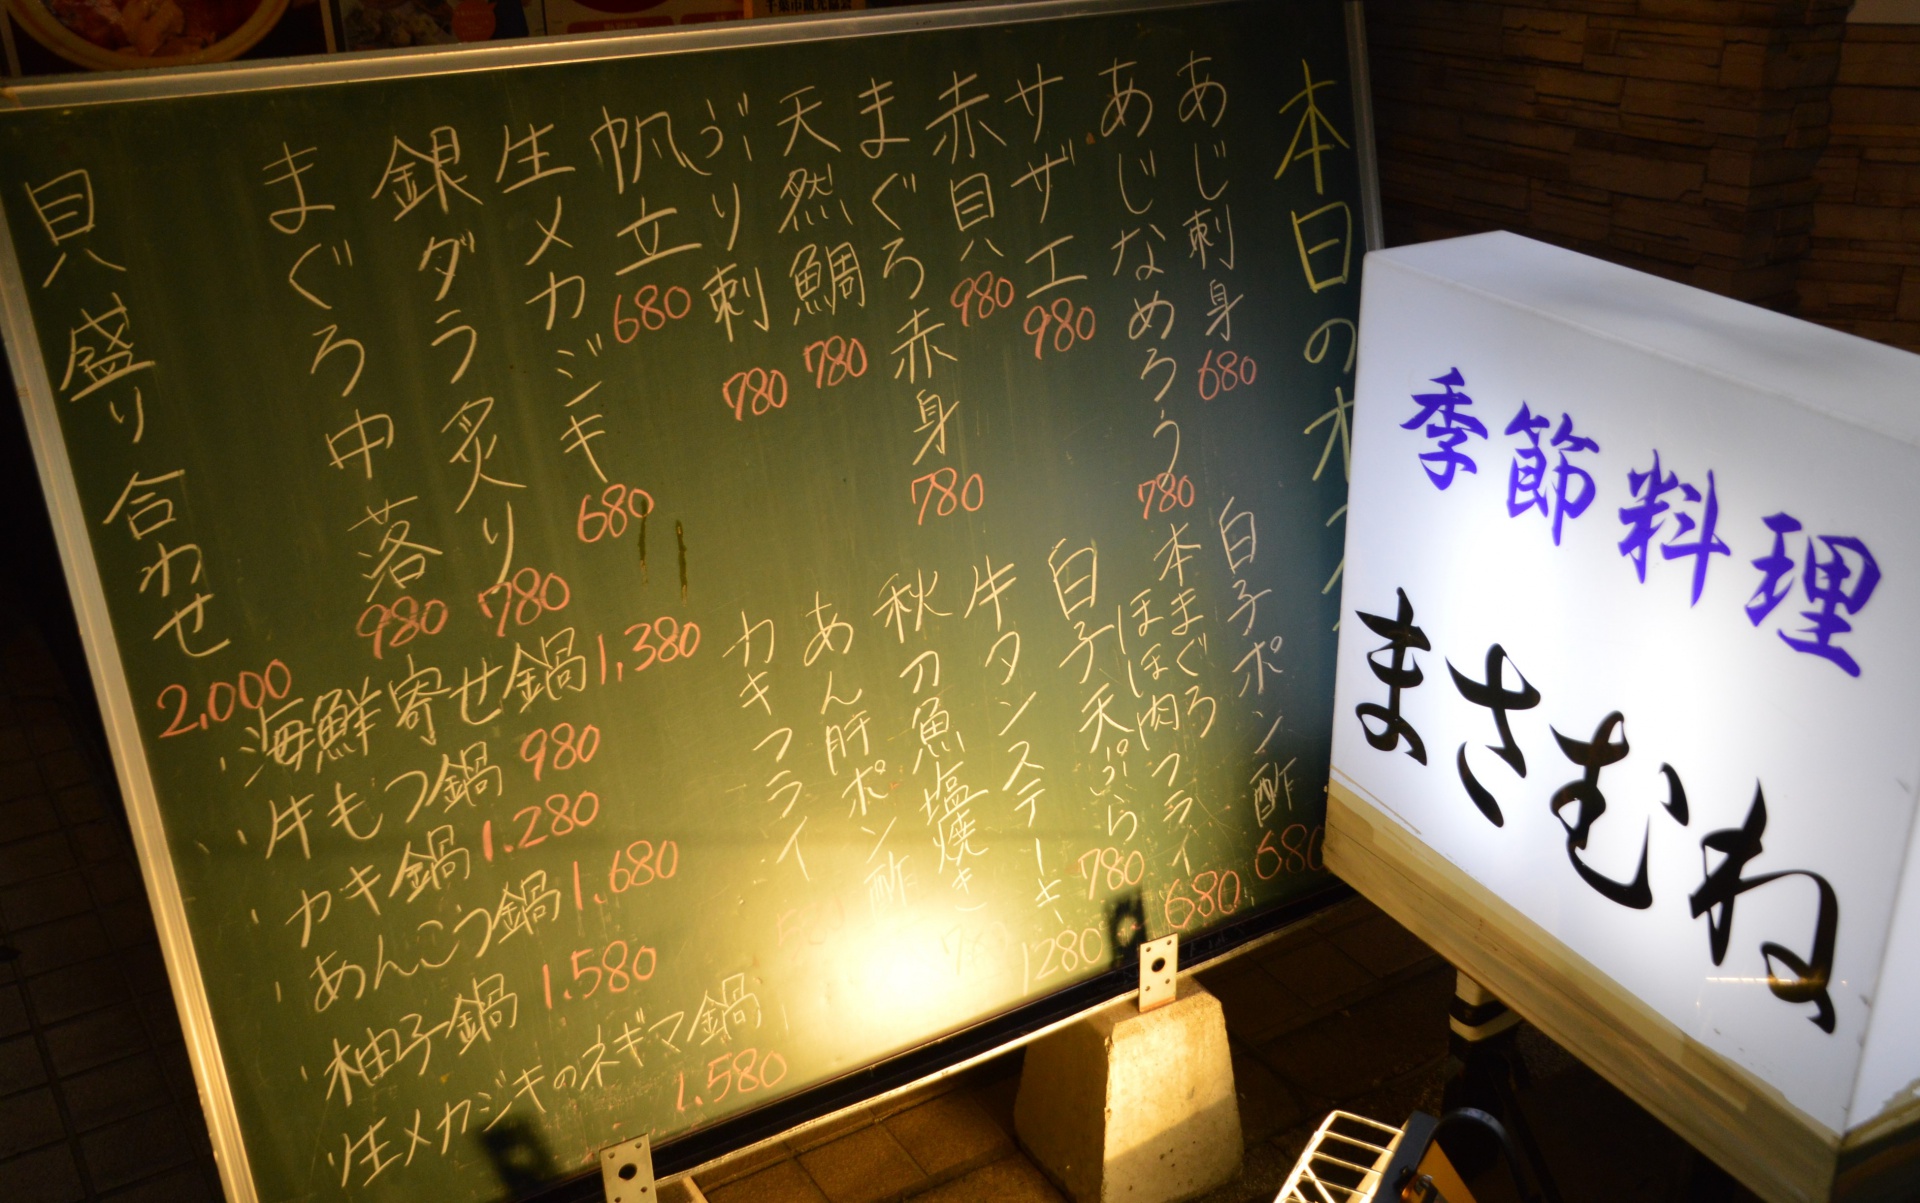 千葉市観光協会
本日のオス
あじ刺身 680
あじなめろう 780
サザエ 980
赤貝 980
まぐろ赤身 780
天然鯛 780
ぶり刺 780
帆立 680
生メカジキ 680
銀ダラ炙り 780
まぐろ中落 980
貝盛り合わせ 2,000
白子ポン酢 680
本まぐろ
ほほ肉フライ 680
白子天ぷら 780
牛タンステーキ 1280
秋刀魚塩焼き
あん肝ポン酢
カキフライ
海鮮寄せ鍋 1,380
牛もつ鍋 980
カキ鍋 1.280
あんこう鍋 1.680
柚子鍋 1.580
生メカジキのネギマ鍋
1.580
季節料理
まさむね